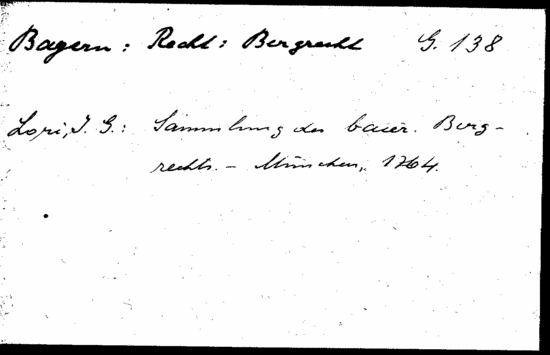 Bayern: Recht: Bergrecht G. 138
Lori, J. G.: Sammlung des baier. Berg-
rechts. – München, 1764.